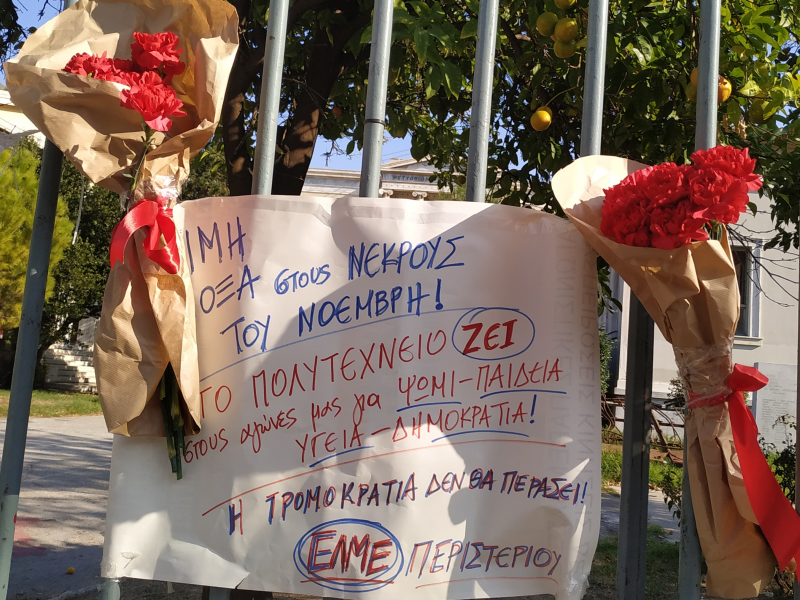 ΙΜΗ
ΟΞΑ στους ΝΕΚΡΟΥΣ
ΤΟΥ ΝΟΕΜΒΡΗ!
ΤΟ ΠΟΛΥΤΕΧΝΕΙΟ ΖΕΙ
στους αγώνες μας για ΨΩΜΙ-ΠΑΙΔΕΙΑ
ΥΓΕΙΑ-ΔΗΜΟΚΡΑΤΙΑ!
Η ΤΡΟΜΟΚΡΑΤΙΑ ΔΕΝ ΘΑ ΠΕΡΑΣΕΙ!
ΕΛΜΕ ΠΕΡΙΣΤΕΡΙΟΥ